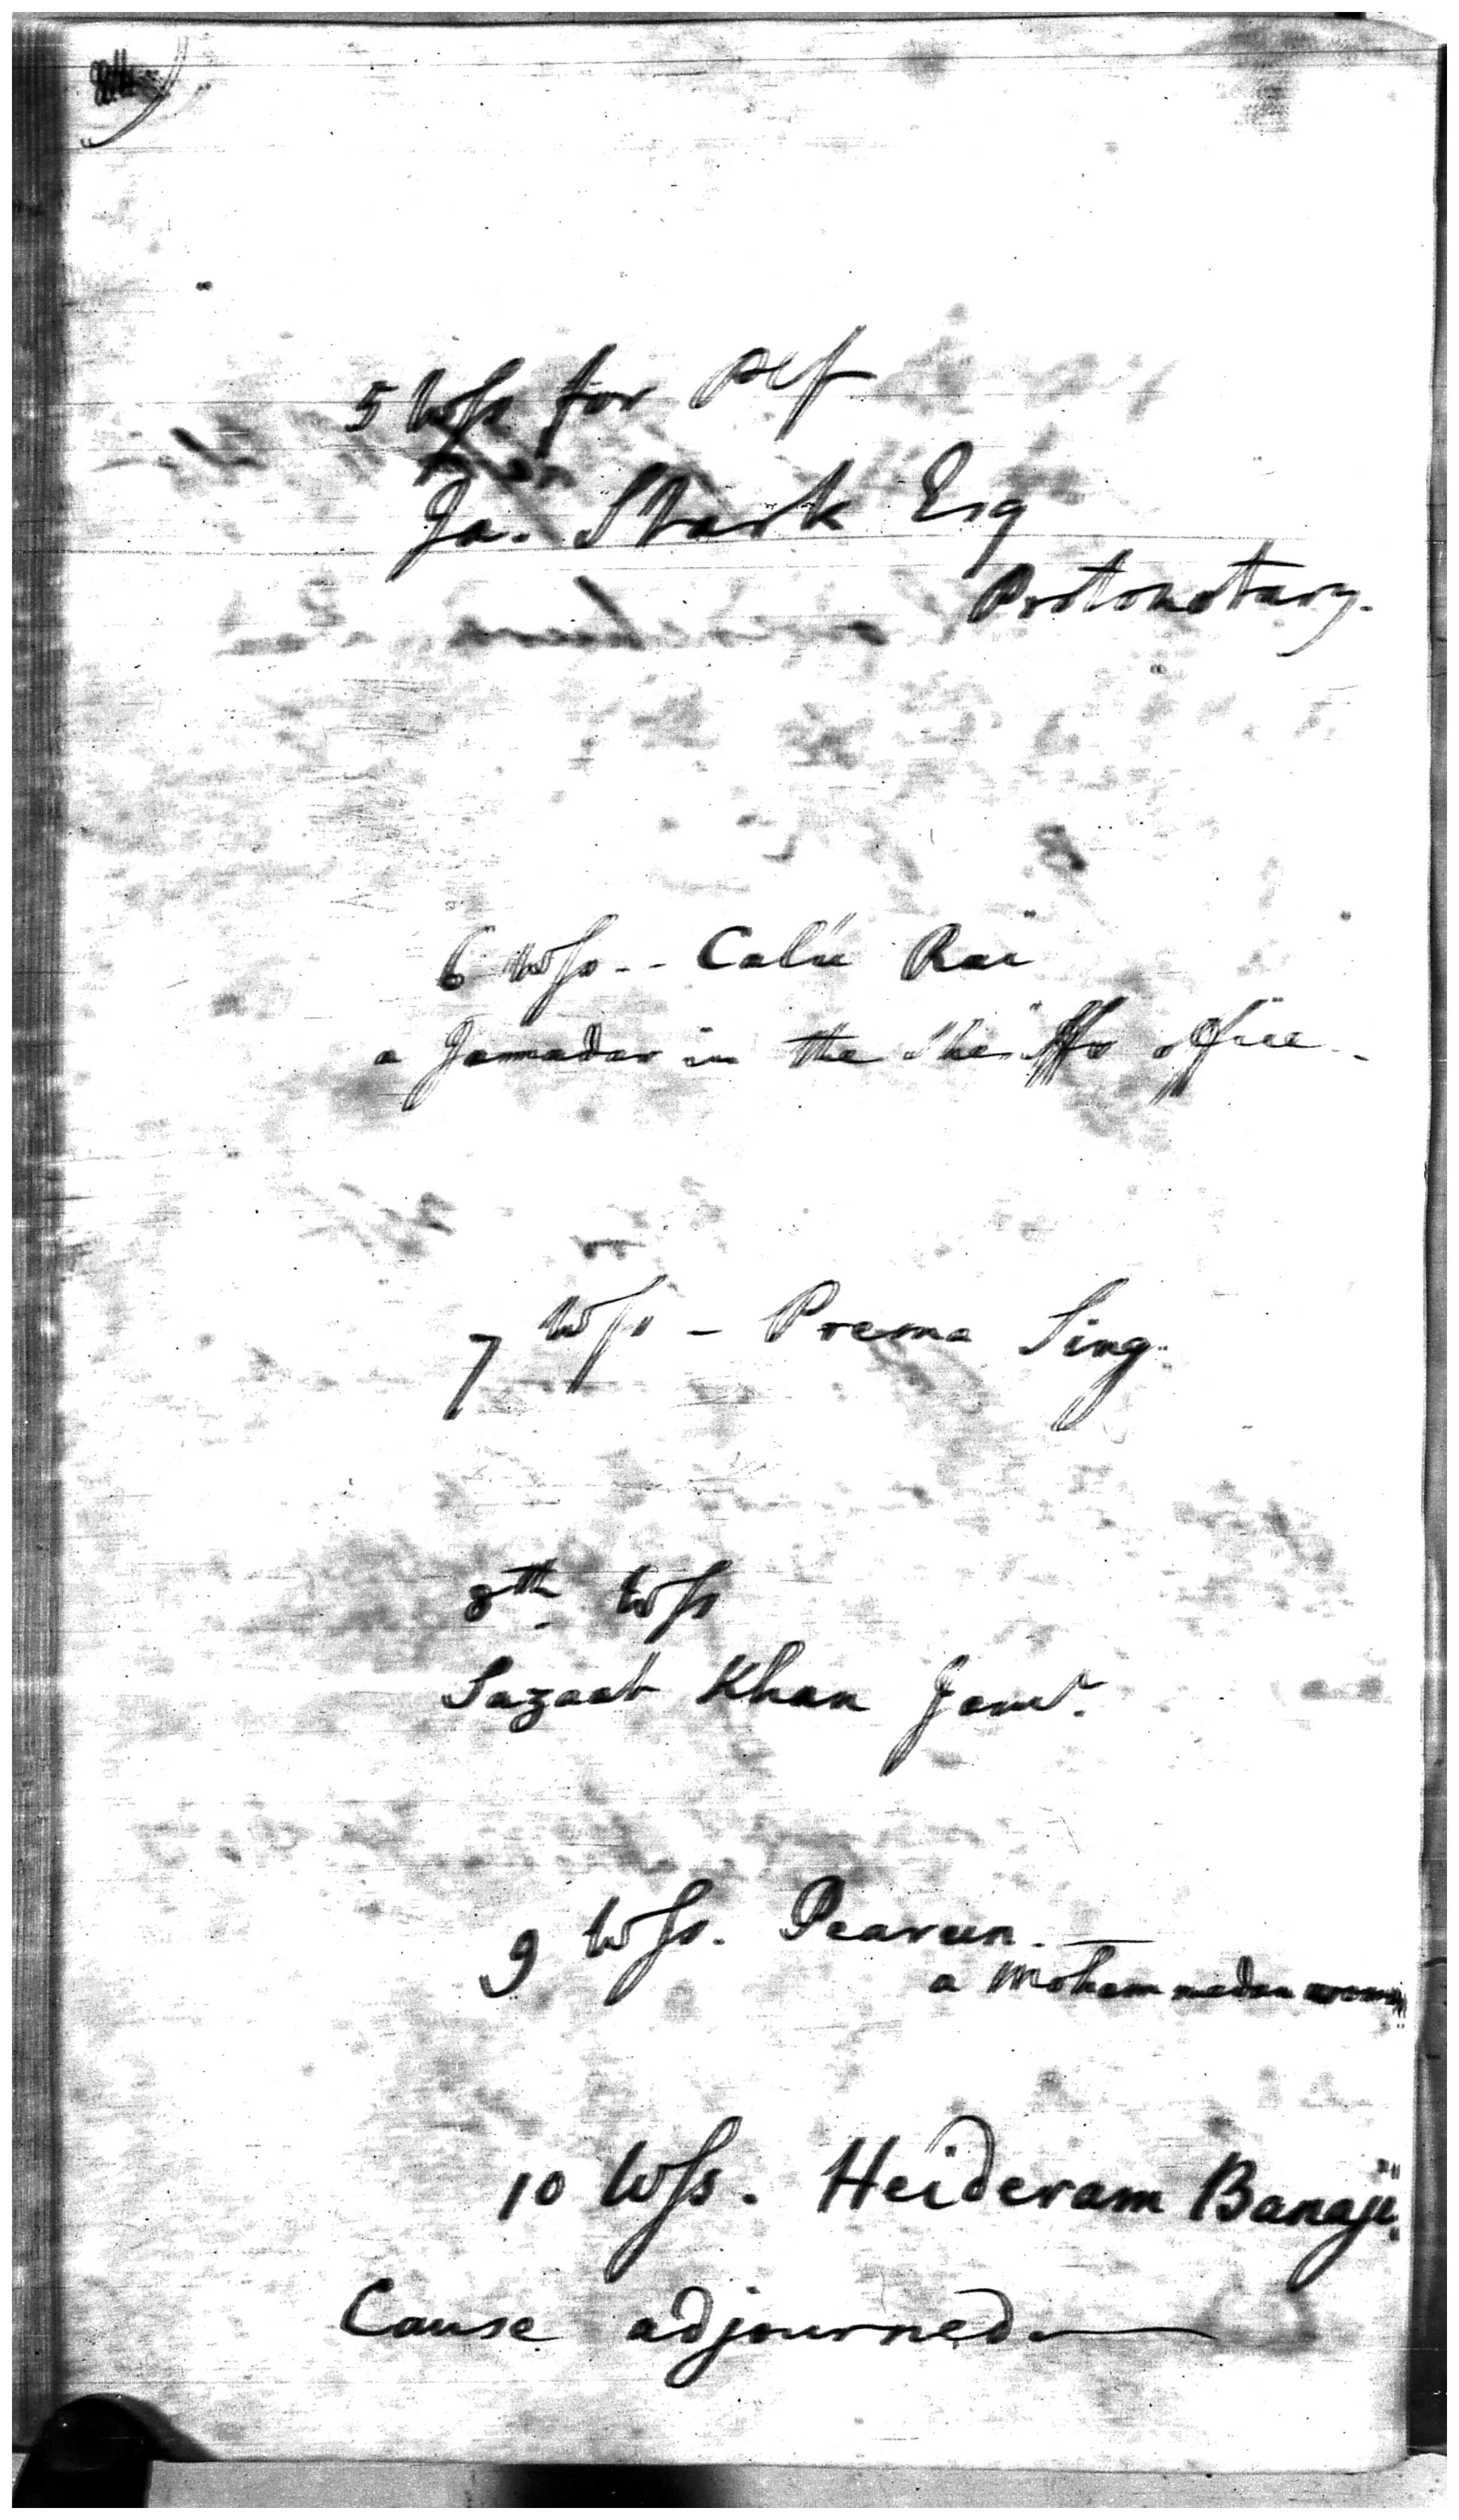 5 Wss for Plf
Ja. Stark Esq
Protonotary.
6 Wss -- Calli Rai
a Jamadar in the Sheriffs office -
7 Wss - Prema Sing.
8th Wss
Sazaat Khan Jemr.
9 Wss. Pearun. —
a Mohammedan woman
10 Wss. Heideram Banaji.
Cause adjourned —